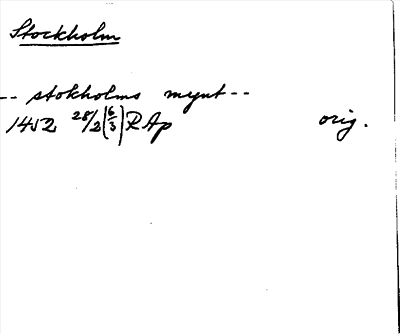 Stockholm
-- stokholms mynt --
1452 28/2 (6/3) RAp orig.